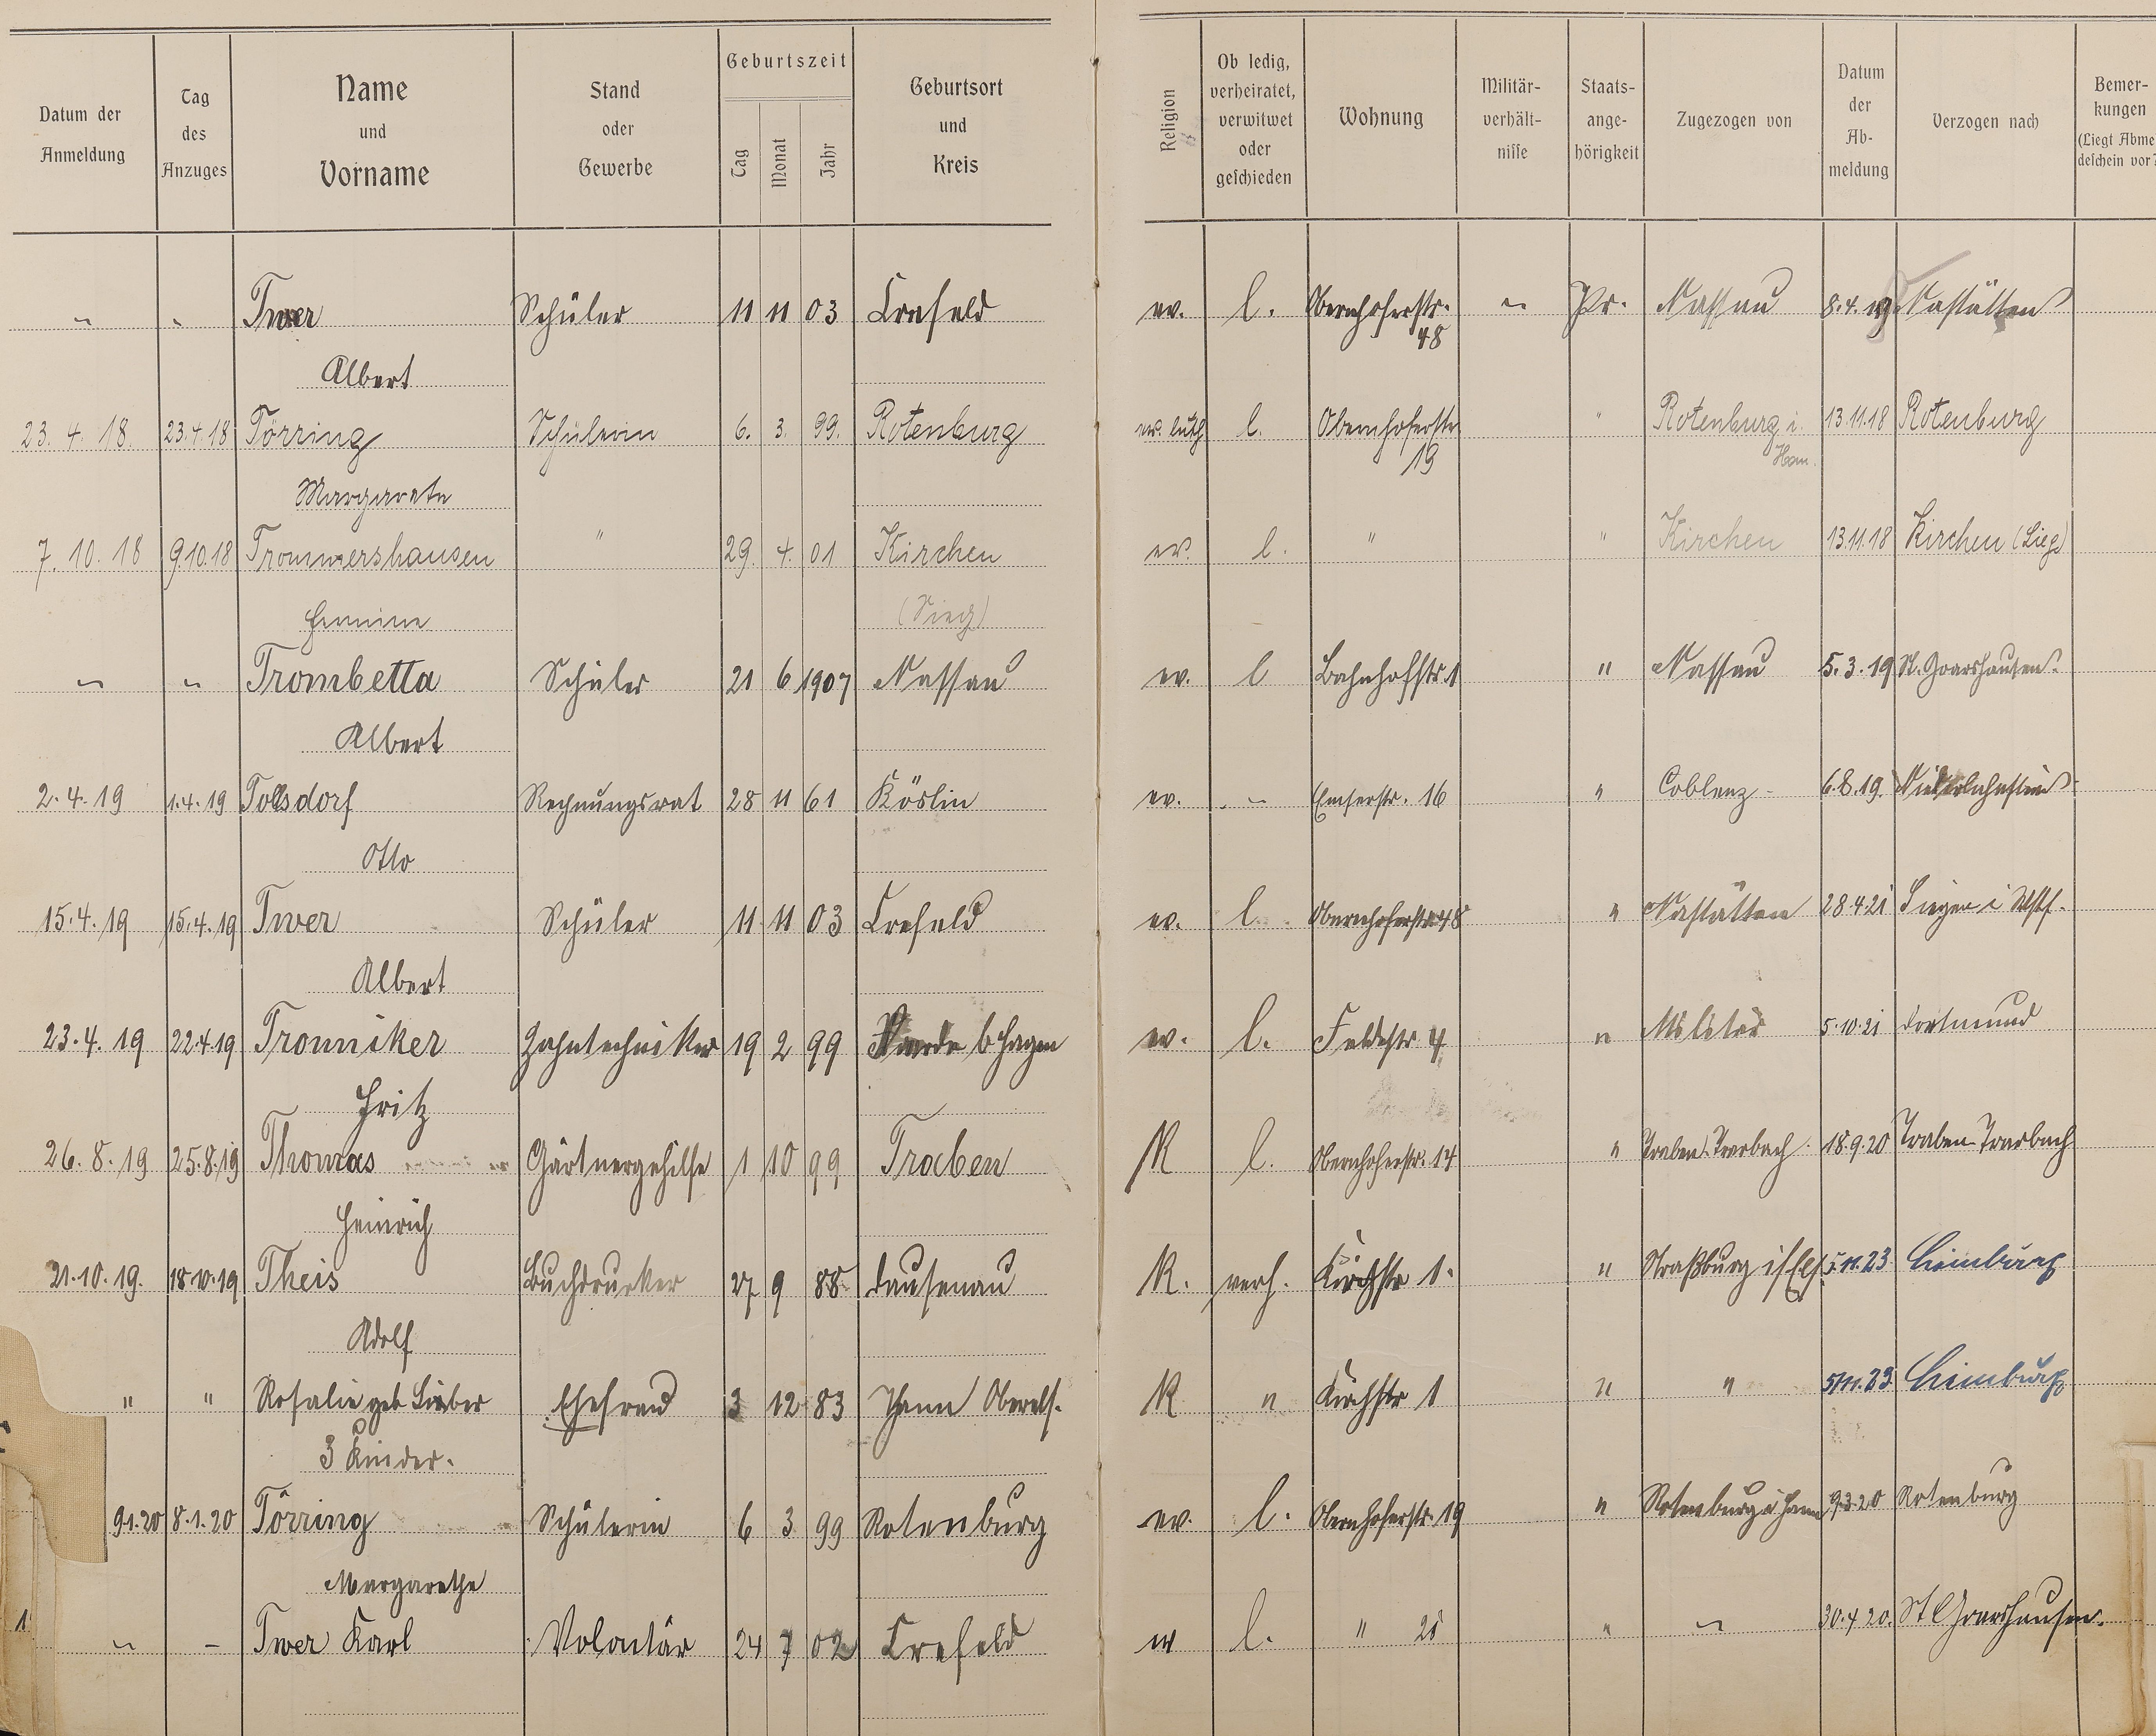 Datum der Anmeldung | Tag des Anzuges | Name und Vorname | Stand oder Gewerbe | Geburtszeit Tag Monat Jahr | Geburtsort und Kreis | Religion | Ob ledig, verheiratet, verwitwet oder geschieden | Wohnung | Militär-verhält-nisse | Staats-ange-hörigkeit | Zugezogen von | Datum der Ab-meldung | Verzogen nach | Bemer-kungen (Liegt Abme deschein vor?
" " Twer Schüler 11 11 03 Crefeld ev. l. Obernhoferstr. 48 " Pr. Nassau 8.4.19 Nastätten
Albert
23. 4. 18. 23.4.18 Törring Schülerin 6. 3. 99. Rotenburg ev. luth l. Obernhoferstr 19 " Rotenburg i. Han. 13.11.18 Rotenburg
Margarete
7. 10. 18 9.10.18 Trommershausen " 29. 4. 01 Kirchen ev. l. " " Kirchen 13.11.18 Kirchen (Sieg)
(Sieg)
" " Trombetta Schüler 21 6 1907 Nassau ev. l Bahnhofstr. 1 " Nassau 5.3.19 St. Goarshausen
Albert
2.4.19 1.4.19 Tollsdorf Rechnungsrat 28 11 61 Köslin ev. - Emserstr. 16 " Coblenz 6.8.19. Niederlahnstein
Otto
15.4.19 15.4.19 Twer Schüler 11 11 03 Crefeld ev. l. Obernhoferstr. 48 " Nastätten 28.4.21 Siegen i Wstf.
Albert
23.4.19 22.4.19 Tronniker Zahntechniker 19 2 99 b Hagen ev. l. Feldstr. 4 " Militär 5.10.21 Dortmund
Fritz
26.8.19 25.8.19 Thomas Gärtnergehilfe 1 10 99 Traben K l. Obernhoferstr. 14 " Traben-Trarbach 18.9.20 Traben-Trarbach
Heinrich
21.10.19. 18.10.19 Theis Buchdrucker 27 9 88 Dausenau K. verh. Kirchstr 1. " Straßburg i/Els. 5.11.23 Limburg
Adolf
" " Rosalie geb Lieber Ehefrau 3 12 83 Thann Oberels. K " Kirchstr 1 " " 5/11.23 Limburg
3 Kinder.
9.1.20 8.1.20 Törring Schülerin 6 3 99 Rotenburg ev. l. Obernhoferstr. 19 " Rotenburg i Hann 9.3.20 Rotenburg
Margarethe
1 " - Twer Karl Volontär 24 7 02 Crefeld ev l. " " " 30.4.20. St Goarshausen.